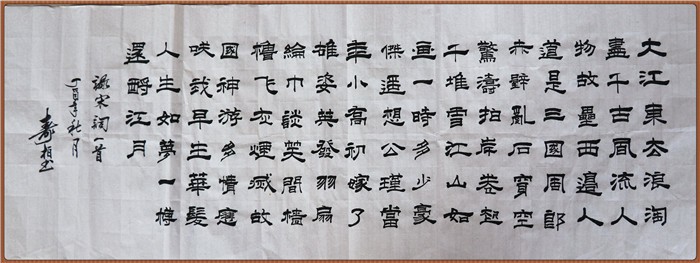 大江東去浪淘
盡千古風流人
物故壘西邊人
道是三國周郎
赤壁亂石穿空
驚濤拍岸卷起
千堆雪江山如
画一時多少豪
傑遥想公瑾當
年小喬初嫁了
雄姿英發羽扇
綸巾談笑間檣
櫓飞灰煙滅故
國神游多情應
咲我早生華髮
人生如夢一樽
還酹江月
錄宋詞一首
丁酉年秋月